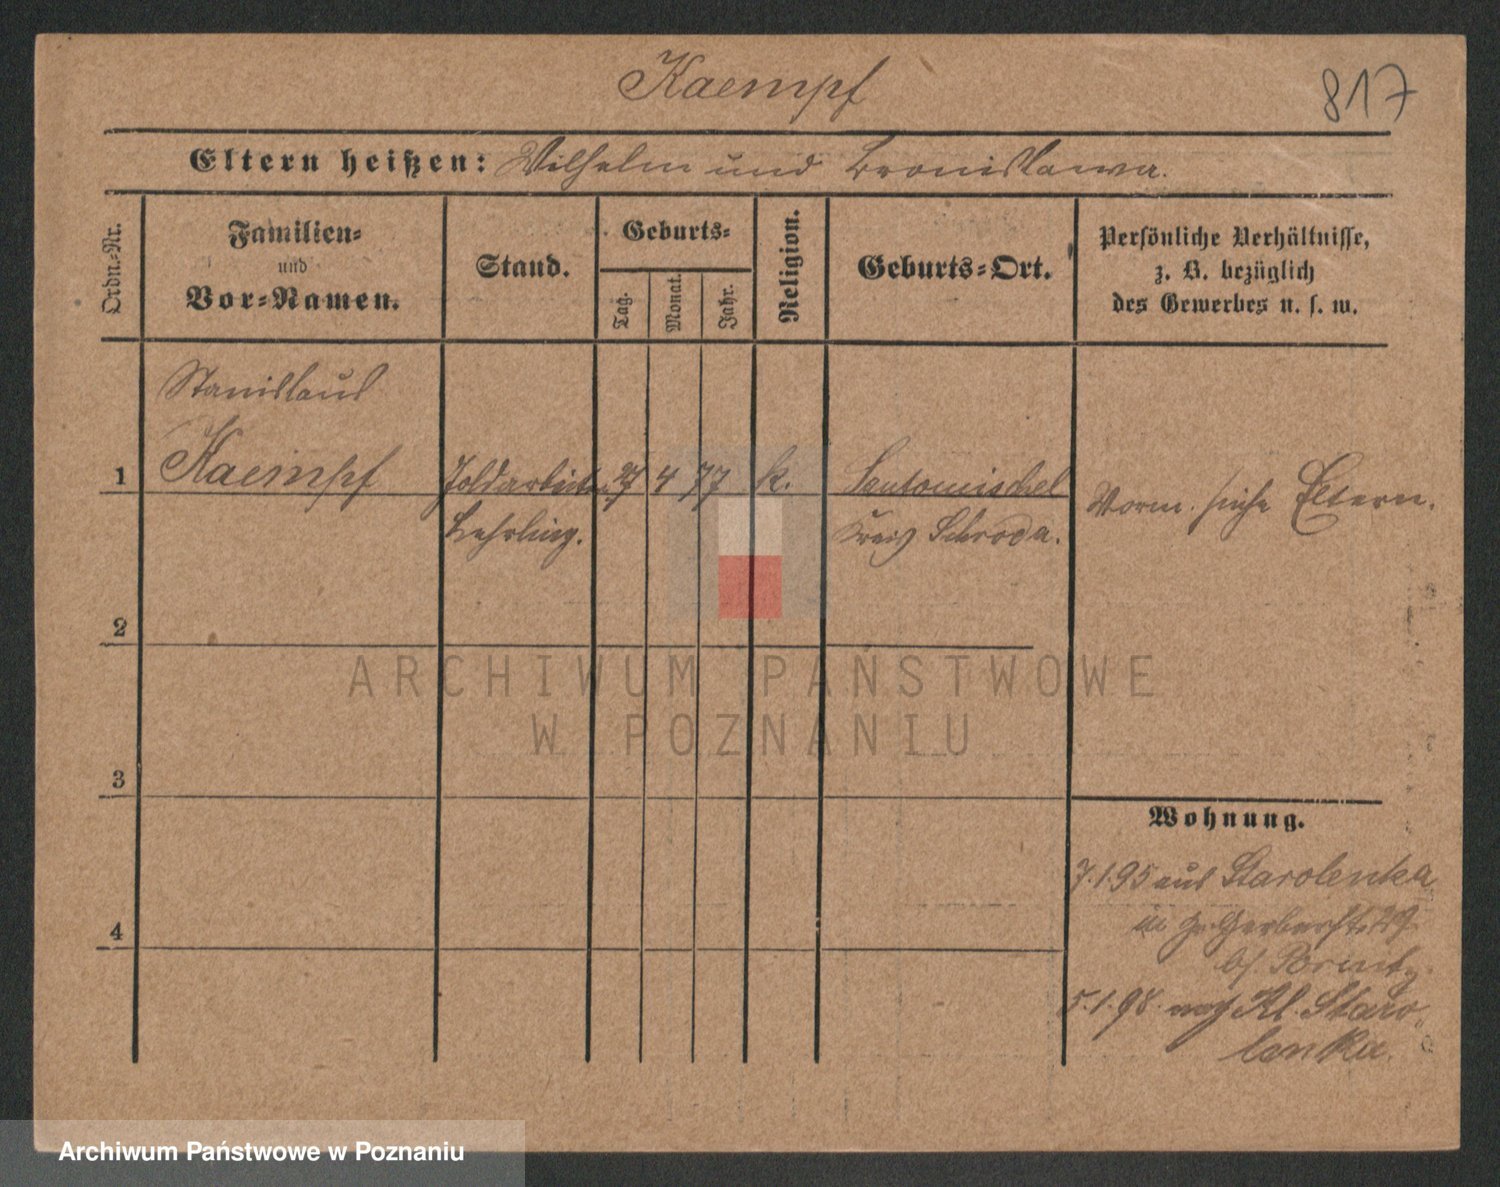 Kaempf
817
Eltern heißen: Wilhelm und Bronislawa.
Ordn.-Nr.
Familien-
und
Vor-Namen.
Stand.
Geburts-
Tag.
Monat.
Jahr.
Religion.
Geburts-Ort.
Persönliche Verhältnisse,
z. B. bezüglich
des Gewerbes u. s. w.
Stanislaus
1 Kaempf Goldarbeiter 4 77 k. Santomischel
Lehrling. Kreis Schroda.
Vorm. siehe Eltern.
2
3
4
Wohnung.
7.1.95 aus Starolenka
Gr. Gerberstr. 29
bei
5.1.98. nach Kl. Staro
lenka.
ARCHIWUM PAŃSTWOWE
W POZNANIU
Archiwum Państwowe w Poznaniu